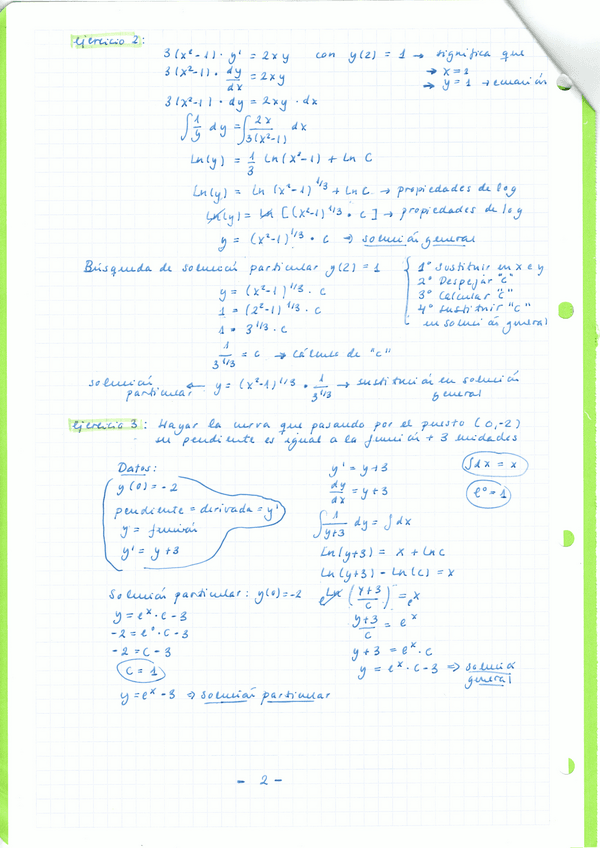 Ejercicio 2:
3(x²-1) · y' = 2xy con y(2) = 1 → significa que
3(x²-1) · dy/dx = 2xy → x = 2
→ y = 1 → ecuación
3(x²-1) · dy = 2xy · dx
∫ 1/y dy = ∫ 2x/3(x²-1) dx
Ln(y) = 1/3 Ln(x²-1) + Ln C
Ln(y) = Ln (x²-1)^1/3 + Ln C → propiedades de log
Ln(y) = Ln [(x²-1)^1/3 · C] → propiedades de log
y = (x²-1)^1/3 · C → solución general
Búsqueda de solución particular y(2) = 1
1º Sustituir en x e y
2º Despejar "C"
3º Calcular "C"
4º Sustituir "C"
en solución general
y = (x²-1)^1/3 · C
1 = (2²-1)^1/3 · C
1 = 3^1/3 · C
1/3^1/3 = C → cálculo de "C"
solución particular ← y = (x²-1)^1/3 · 1/3^1/3 → sustitución en solución
general
Ejercicio 3: Hayar la curva que pasando por el punto (0,-2)
su pendiente es igual a la función + 3 unidades
Datos:
y(0) = -2
pendiente = derivada = y'
y = función
y' = y+3
y' = y+3
dy/dx = y+3
∫ 1/y+3 dy = ∫ dx
Ln(y+3) = x + Ln C
Ln(y+3) - Ln(C) = x
e^Ln (y+3/C) = e^x
y+3/C = e^x
y+3 = e^x · C
y = e^x · C - 3 ⇒ solución
general
∫dx = x
e⁰ = 1
Solución particular: y(0) = -2
y = e^x · C - 3
-2 = e⁰ · C - 3
-2 = C - 3
C = 1
y = e^x - 3 ⇒ solución particular
- 2 -